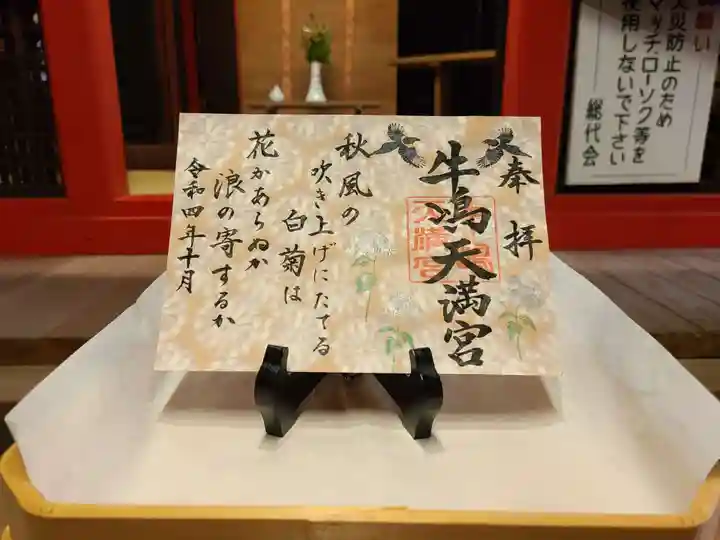 奉拝
牛嶋天満宮
秋風の
吹き上げにたてる
白菊は
花かあらぬか
浪の寄するか
令和四年十月
願い
火災防止のため
マッチ、ローソク等を
使用しないで下さい
総代会